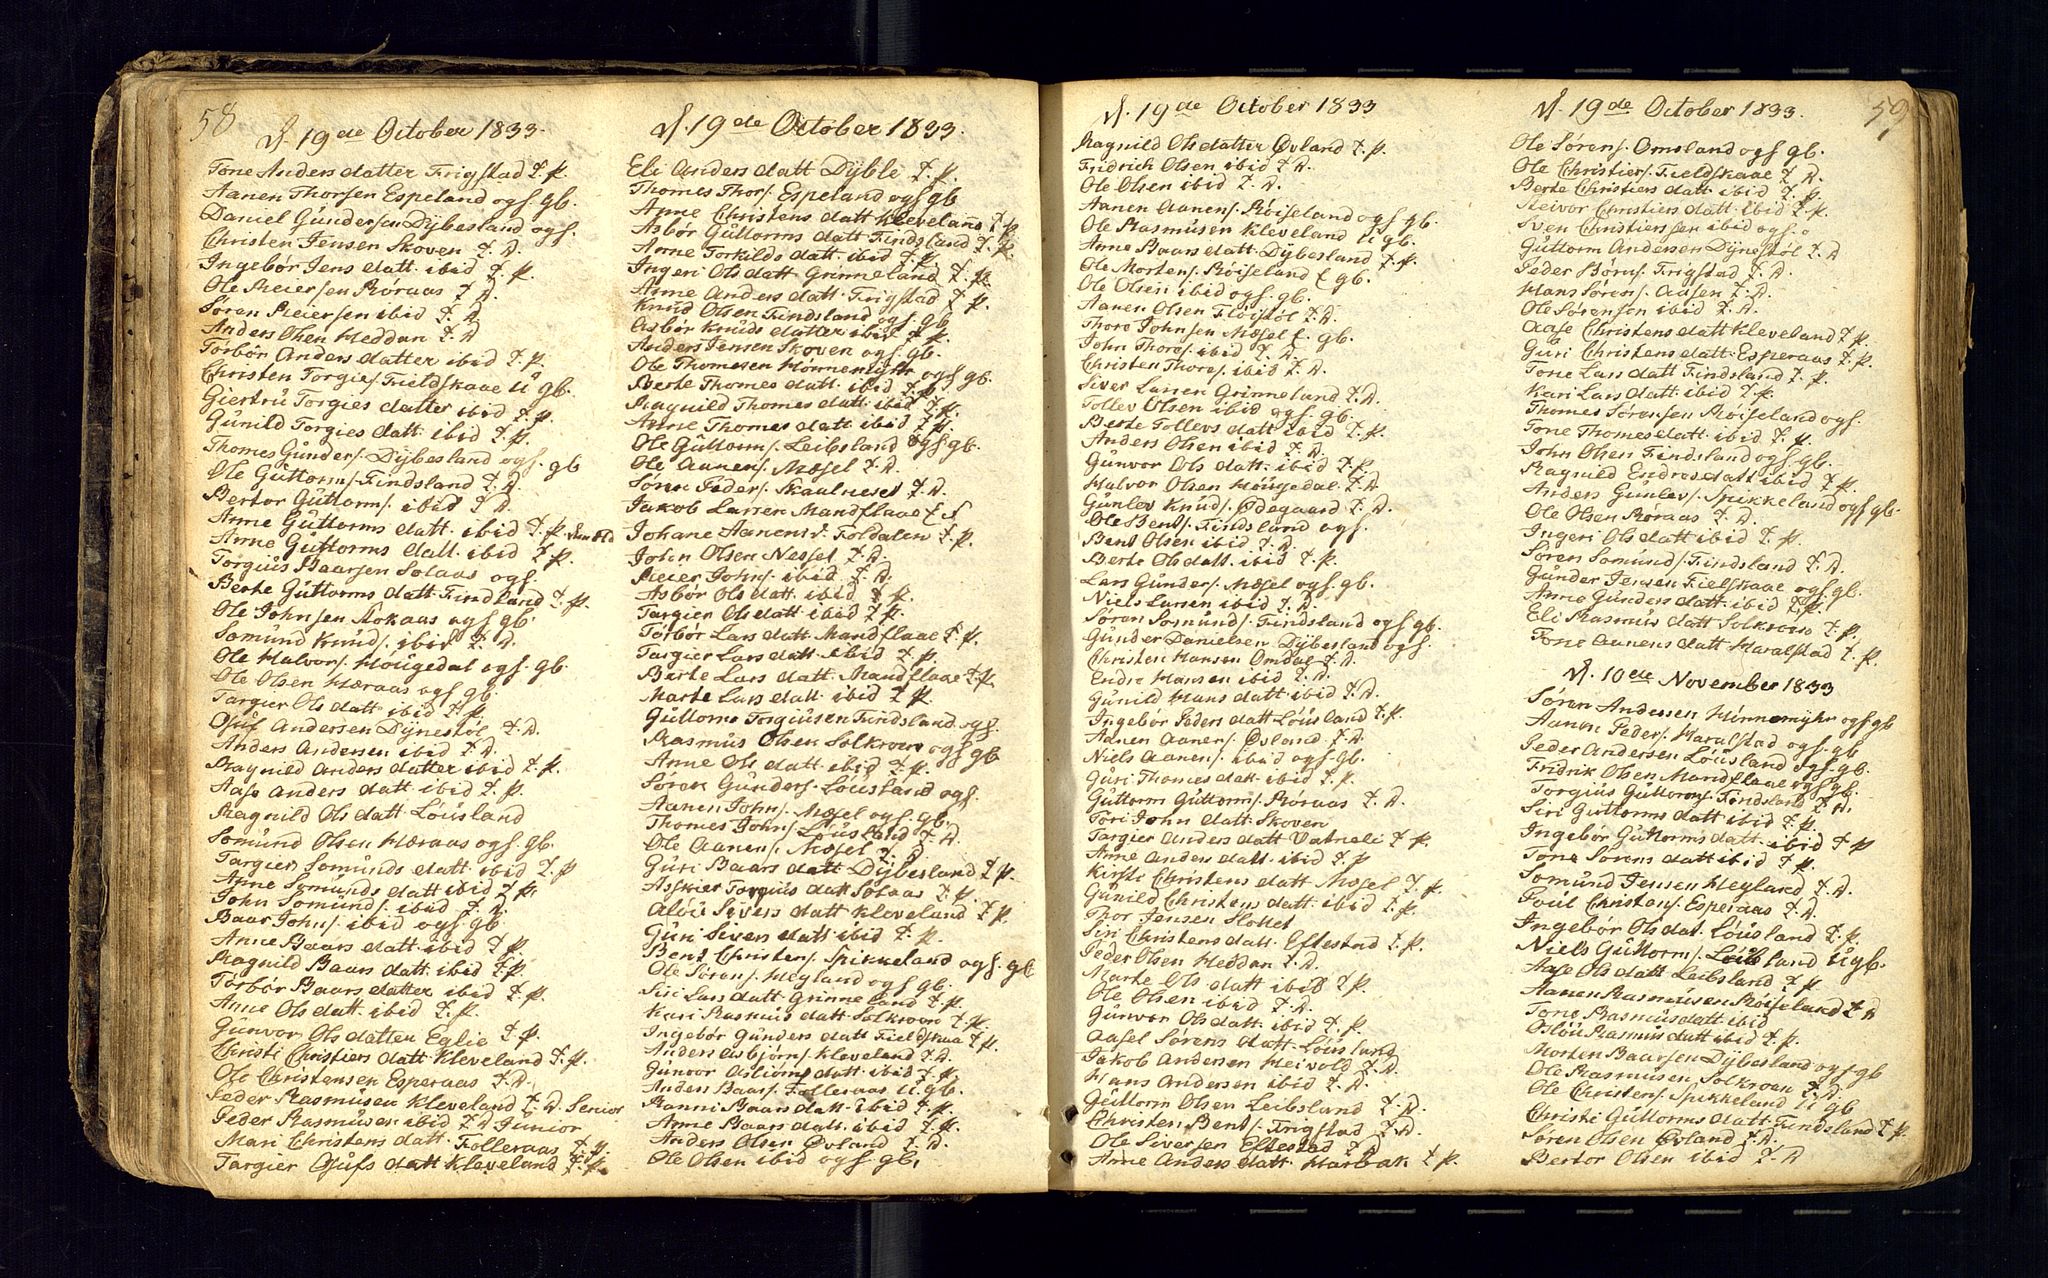 58
d. 19de October 1833.
Tone Andersdatter Trigstad t. p.
Aanen Thorsen Espeland ogs. gb.
Daniel Gundersen Dybesland ogs.
Christen Jensen Skoven t. D.
Ingebor Jens datt. ibid t. p.
Ole Reiersen Røraas t. D.
Søren Reiersen ibid t. D.
Anders Olsen Heddan t. D
Torbor Anders datter ibid t. p.
Christen Torgies/. Fieldskaae U gb.
Giertru Torgies datter ibid t. p.
Gunild Torgies datt. ibid t. p.
Thomes Gunders/. Dybesland ogs. gb
Ole Guttorms/. Findsland t. D.
Bertor Guttorms/. ibid t. D.
Anne Guttorms datt. ibid t. p.
Anne Guttorms datt. ibid t. p.
Torgius Baarsen Solaas ogs.
Berte Guttorms datt. Findland t. p.
Ole Johnsen Mokaas ogs gb.
Somund Knuds/. ibid t. D.
Ole Halvors/. Hougedal ogs. gb.
Ole Olsen Hæraas ogs gb.
Targier Ols datt ibid t. p.
Osuf Andersen Dynestøl t. D.
Anders Andersen ibid t. D.
Ragnild Anders datter ibid t. p.
Aase Anders datt ibid t. p.
Ragnild Ols datt Lousland
Somund Olsen Hæraas ogs. gb.
Targier Somunds datt ibid t. p
Anne Somunds datt ibid t. p.
John Somunds/. ibid t. D.
Baar Johns/. ibid ogs gb
Anne Baars datt. ibid t. p.
Ragnild Baars datt. ibid t. p.
Torbor Baars datter ibid t. p.
Anne Ols datt. ibid t. p.
Gunvor Ols datter Eglie t. p.
Christi Christiers datt Kleveland t. p.
Ole Christensen Esperaas t. D.
Peder Rasmusen Kleveland t. D. Senior
Peder Rasmusen ibid t. D Junior
Mari Christens datt. Folleraas t. p.
Targier Osufs datt Kleveland t. p.
d. 19de October 1833.
Eli Anders datt Dyble t. p.
Thomes Thors/. Espeland ogs gb
Anne Christens datt Kleveland t. p.
Asbor Guttorms datt Findsland t. p.
Anne Torkilds datt ibid t. p.
Ingeri Ols datt Grinneland t. p.
Anne Anders datt. Trigstad t. p.
Knud Olsen Findsland ogs. gb
Asbor Knuds datter ibid t. p.
Anders Jensen Skoven ogs. gb.
Ole Thomesen Hønnemyhr ogs gb.
Berte Thomes datt. ibid t. p.
Ragnild Thomes datt. ibid t. p.
Anne Thomes datt ibid t. p.
Ole Guttorms/. Leibsland ogs gb.
Ole Aanens/. Mæsel t. D.
Søren Peders/. Skaulneset t. D.
Jakob Larsen Mandflaae
Johane Aanens d. Foldalen t. p.
John Olsen Nesset t. D.
Reier Johns/. ibid t. D.
Asbor Ols datt ibid t. p.
Targier Ols datt ibid t. p.
Torbor Lars datt Mandflaae t. p.
Targier Lars datt. ibid t. p.
Berte Lars datt. Mandflaae t. p.
Marte Lars datt. ibid t. p.
Guttorm Torgiusen Findsland ogs.
Rasmus Olsen Solkroen ogs gb
Anne Ols datt ibid t. p.
Søren Gunders/. Lousland ogs.
Aanen Johns/. Mæsel ogs. gb.
Thomes Johns/. Lousland t. D.
Ole Aanens/. Mæsel t. D
Guri Baars datt Dybesland t. p.
Asskier Torgius datt Solaas t. p.
Alou Sivers datt Kleveland t. p.
Guri Sivers datt ibid t. p.
Bent Christens/. Spikkeland ogs. gb
Ole Sørens/. Heyland ogs gb.
Siri Lars datt Grinneland t. p.
Kari Rasmus datt Solkroen t. p.
Ingebor Gunders datt Fieldskaa t. p.
Anders Asbjørns/. Kleveland t. D.
Gunvor Asbiørns datt ibid t. p.
Anders Baars/. Folleraas U. gb.
Ranni Baars datt. ibid t. p.
Anne Baars datt. ibid t. p.
Anders Olsen Øvland t. D.
Ole Olsen ibid ogs. gb.
d. 19de October 1833
Ragnild Ols datter Øvland t. p.
Fridrich Olsen ibid t. D.
Ole Olsen ibid t. D.
Aanen Aanens/. Røiseland ogs gb.
Ole Rasmusen Kleveland U gb.
Anne Baars datt. Dybesland t. p.
Ole Mortens/. Røiseland gb.
Ole Olsen ibid ogs. gb.
Aanen Olsen Fløistøl t. D.
Thore Johnsen Mæsel gb.
John Thores/. ibid t. D.
Christen Thores/. ibid t. D.
Siver Larsen Grinneland t. D.
Tollev Olsen ibid ogs. gb.
Berte Tollevs datt ibid t. p.
Anders Olsen ibid t. D.
Gunvor Ols datt. ibid t. p.
Halvor Olsen Hougedal t. D
Gunlev Knuds/. Ødegaard t. D.
Ole Bents/. Findsland ogs.
Bent Olsen ibid t. D.
Berte Ols datt. ibid t. p.
Lars Gunders/. Mæsel ogs. gb.
Niels Larsen ibid t. D.
Søren Somunds/. Findsland ogs gb.
Gunder Danielsen Dybesland ogs.
Christen Hansen Omdal t. D.
Endre Hansen ibid t. D.
Gunild Hans datt ibid t. D.
Ingebor Peders datt Lousland t. p.
Aanen Aanens/. Øvland t. D.
Niels Aanens/. ibid ogs gb.
Guri Thomes datt. ibid t. p.
Guttorm Guttorms/. Røraas t. D.
Tori John datt Skoven
Targier Anders datt Vatneli t. p.
Anne Anders datt. ibid t. p
Kirsti Christens datt Mæsel t. p.
Gunild Christens datt. ibid t. p.
Thor Jensen Slottet
Siri Christens datt. Eftestad t. p.
Peder Olsen Heddan t. D.
Marte Ols datt ibid t. p.
Ole Olsen ibid t. D.
Gunvor Ols datt. ibid t. p.
Aasel Sørens datt Lousland
Jakob Andersen Heivold t. D.
Hans Andersen ibid t. D.
Guttorm Olsen Leibsland t. D.
Christen Bents/. Trigstad t. D.
Ole Siversen Eftestad t. D
Anne Anders datt. Harbak t. p.
d. 19de October 1833. 59
Ole Sørens/. Omsland ogs gb.
Ole Christiers/. Fieldskaae t. D
Berte Christiers datt. ibid t. p.
Reivor Christiers datt. ibid t. p.
Sven Christierssen ibid ogs.
Guttorm Andersen Dynestøl t. D
Peder Børns/. Trigstad t. D.
Hans Sørens/. Aasen t. D.
Ole Sørensen ibid t. D.
Aase Christens datt Kleveland t. p.
Guri Christens datt. Esperaas t. p.
Tone Lars datt Findsland t. p.
Kari Lars datt ibid t. p.
Thomes Sørensen Røiseland ogs.
Tone Thomes datt. ibid t. p.
John Olsen Findsland ogs. gb.
Ragnild Endres datt ibid t. p.
Anders Gunlevs/. Spikkeland ogs gb.
Ole Olsen Røraas t. D.
Ingeri Ols datt ibid t. p.
Søren Somunds/. Findsland t. D.
Gunder Jensen Fielskaae ogs. gb.
Anne Gunders datt. ibid t. p.
Eli Rasmus datt Solkroen t. p.
Tone Aanens datt Haralstad t. p.
d. 10de November 1833
Søren Andersen Hønnemyhr ogs gb
Aanen Peders/. Haralstad ogs. gb
Peder Andersen Lousland ogs. gb.
Fridrik Olsen Mandflaae ogs gb.
Torgius Guttorms/. Findsland t. D.
Siri Guttorms datt ibid t. p.
Ingebor Guttorms datt. ibid t. p
Tone Sørens datt ibid t. p.
Somund Jensen Heyland t. D.
Poul Christens/. Esperaas t. D.
Ingebor Ols dat. Lousland t. p.
Niels Guttorms/. Leibsland U gb.
Aase Ols datt Leibsland t. p
Aanen Rasmusen Røiseland t D
Tone Rasmus datt ibid
Oslou Rasmus datt ibid t. p.
Morten Baarsen Dybesland ogs gb
Ole Rasmusen Solkroen t. D.
Ole Christens/. Spikkeland U gb
Christi Guttorms datt. Findsland t. p.
Søren Olsen Øvland t. D.
Bertor Olsen ibid t. D